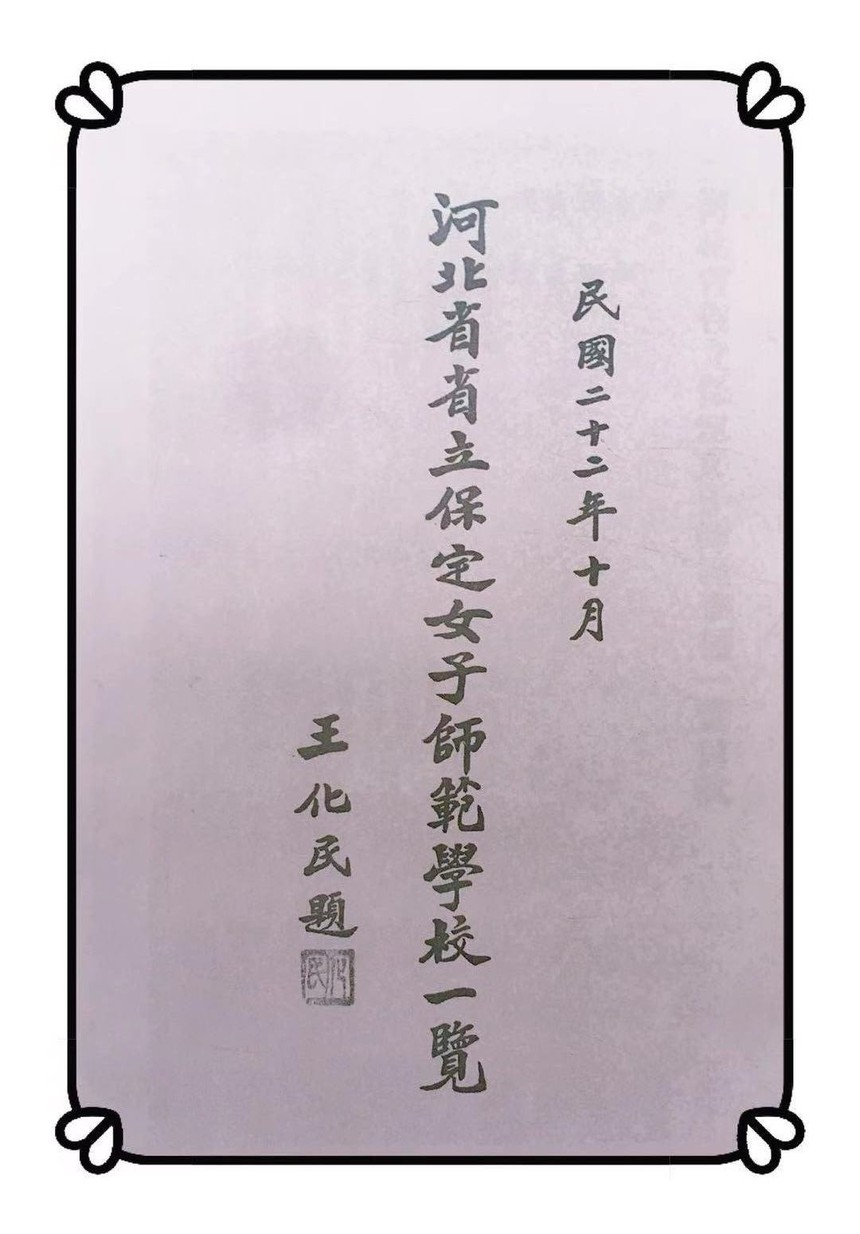 民國二十二年十月
河北省省立保定女子師範學校一覽
王化民題
化民